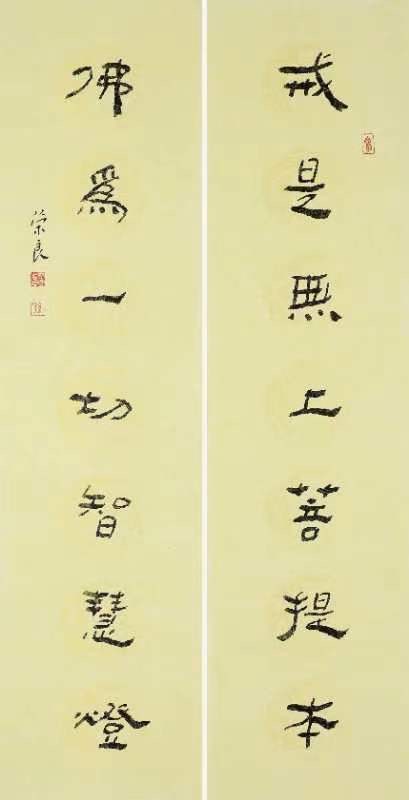 戒是無上菩提本
佛為一切智慧燈
榮良